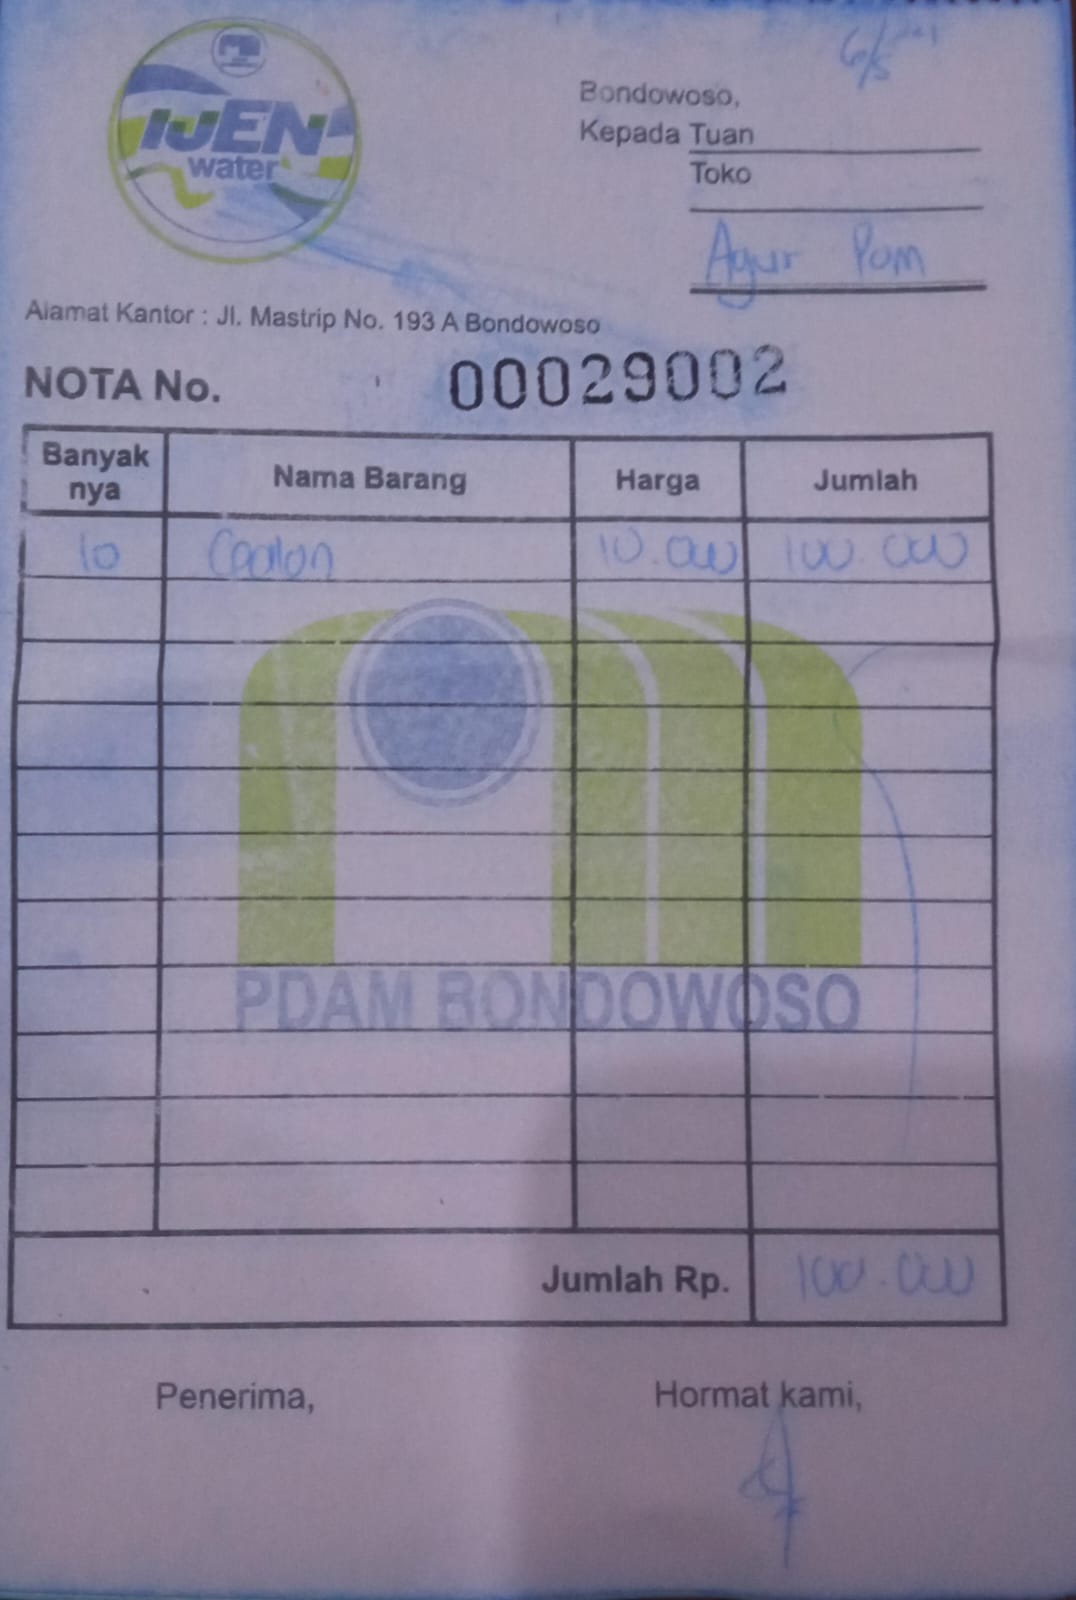 IJEN
water
6/5
Bondowoso,
Kepada Tuan
Toko
Agus Pom
Alamat Kantor : Jl. Mastrip No. 193 A Bondowoso
NOTA No. 00029002
Banyak nya Nama Barang Harga Jumlah
10 Galon 10.000 100.000
PDAM BONDOWOSO
Jumlah Rp. 100.000
Penerima, Hormat kami,